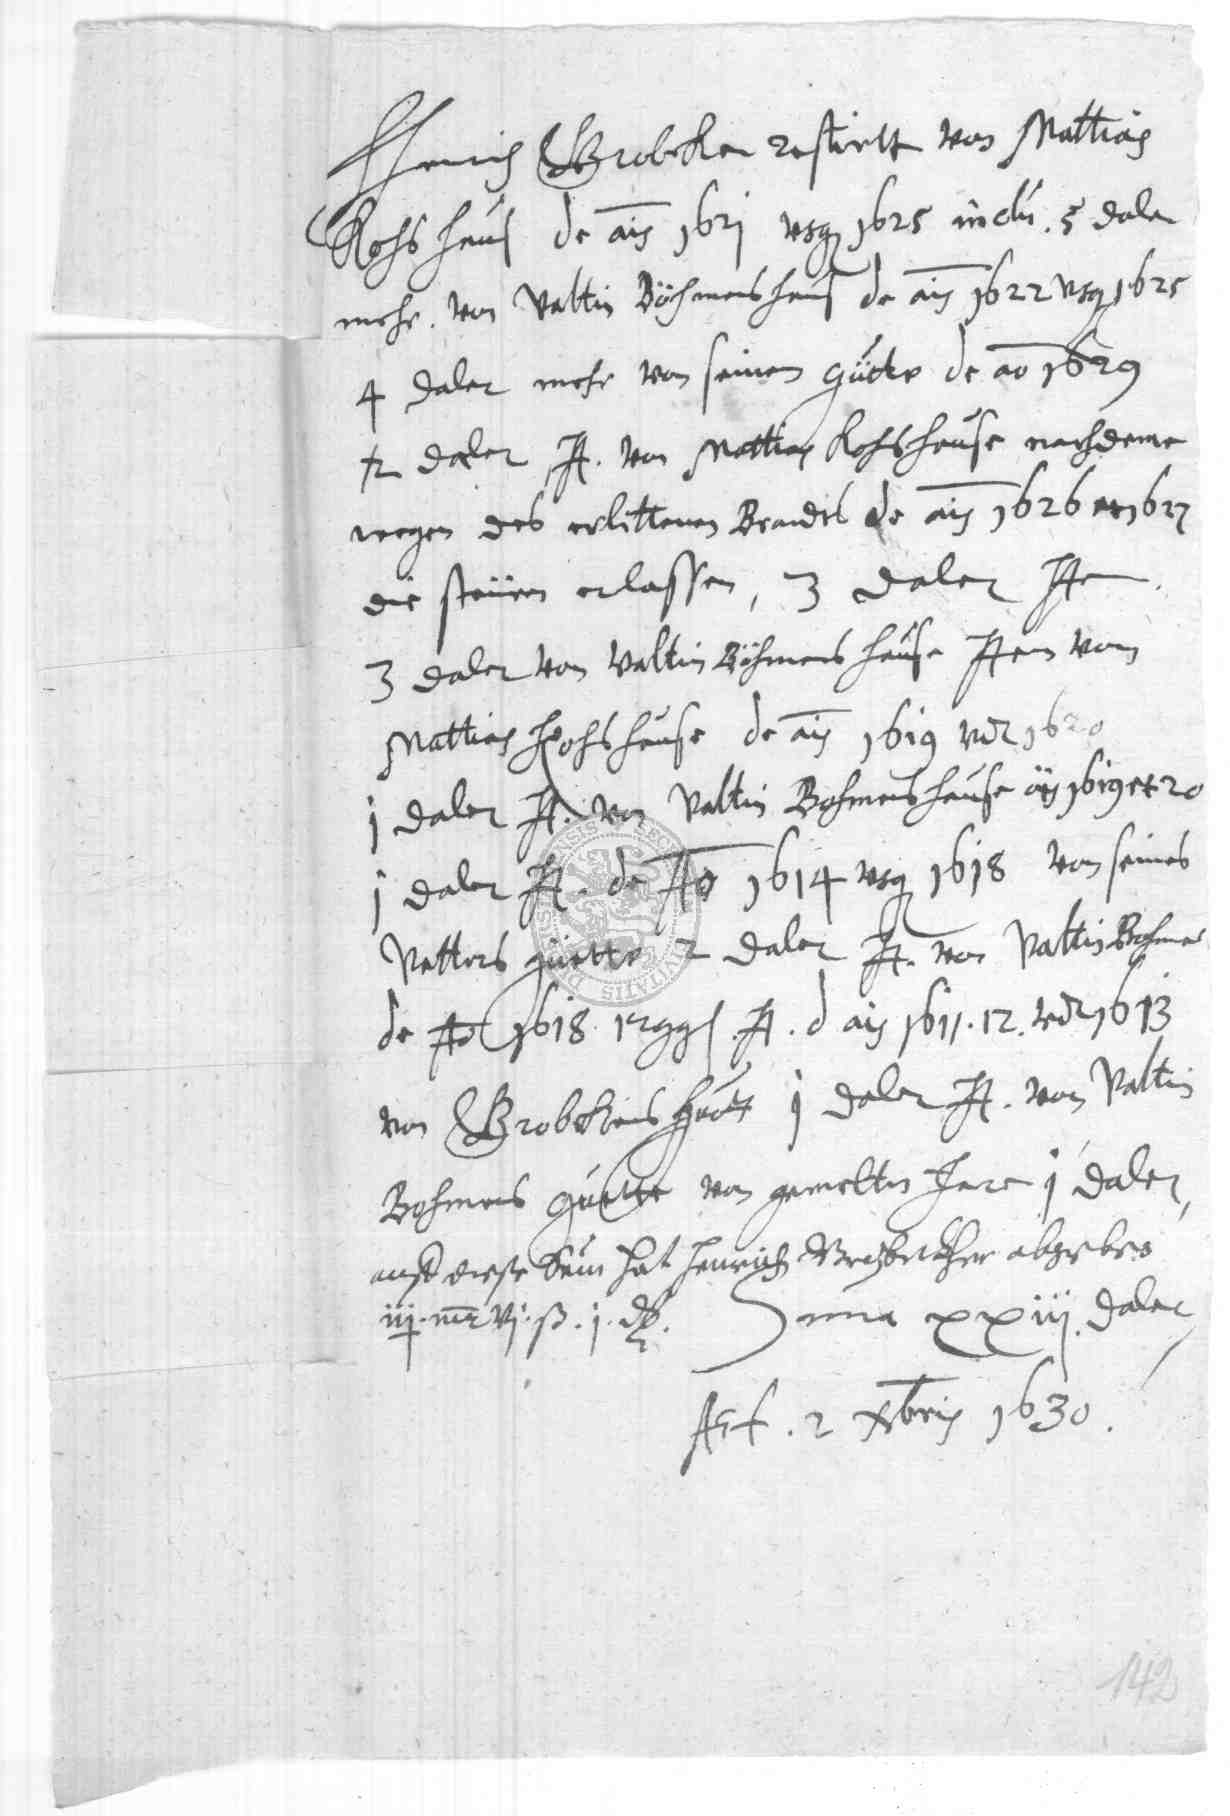 Henrich Grobecker restirett von Mattias
Kochs hauß de ais 1621 usq 1625 inclu. 5 daler
mehr. von Valtin Böhmens hauß de ais 1622 usq 1625
4 daler mehr von seinen gütte de ao 1629
daler It. von Mattias Kochs hause nachdeme
wegen des erlittenen Brandts de ais 1626 et 1627
die steuren erlassen, 3 daler Item
3 daler von Valtin Böhmens hause Item vom
Mattias Kochs hause de ais 1619 und 1620
j daler It. von Valtin Bohmens hause ais 1619 et 20
j daler It. de Ao 1614 usq 1618 von seines
Vatters güette 2 daler It. von Valtin Bohmen
de Ao 1618 12 ggl It. d ais 1611. 12. und 1613
von Grobekens guet j daler It. von Valtin
Bohmens güette von gemelten Jare j daler
auff diese Sum hat Henrich Grobecker abgeben
iij mr vj ß j d. Suma xxiij daler
Act. 2 Xbris 1630.
142